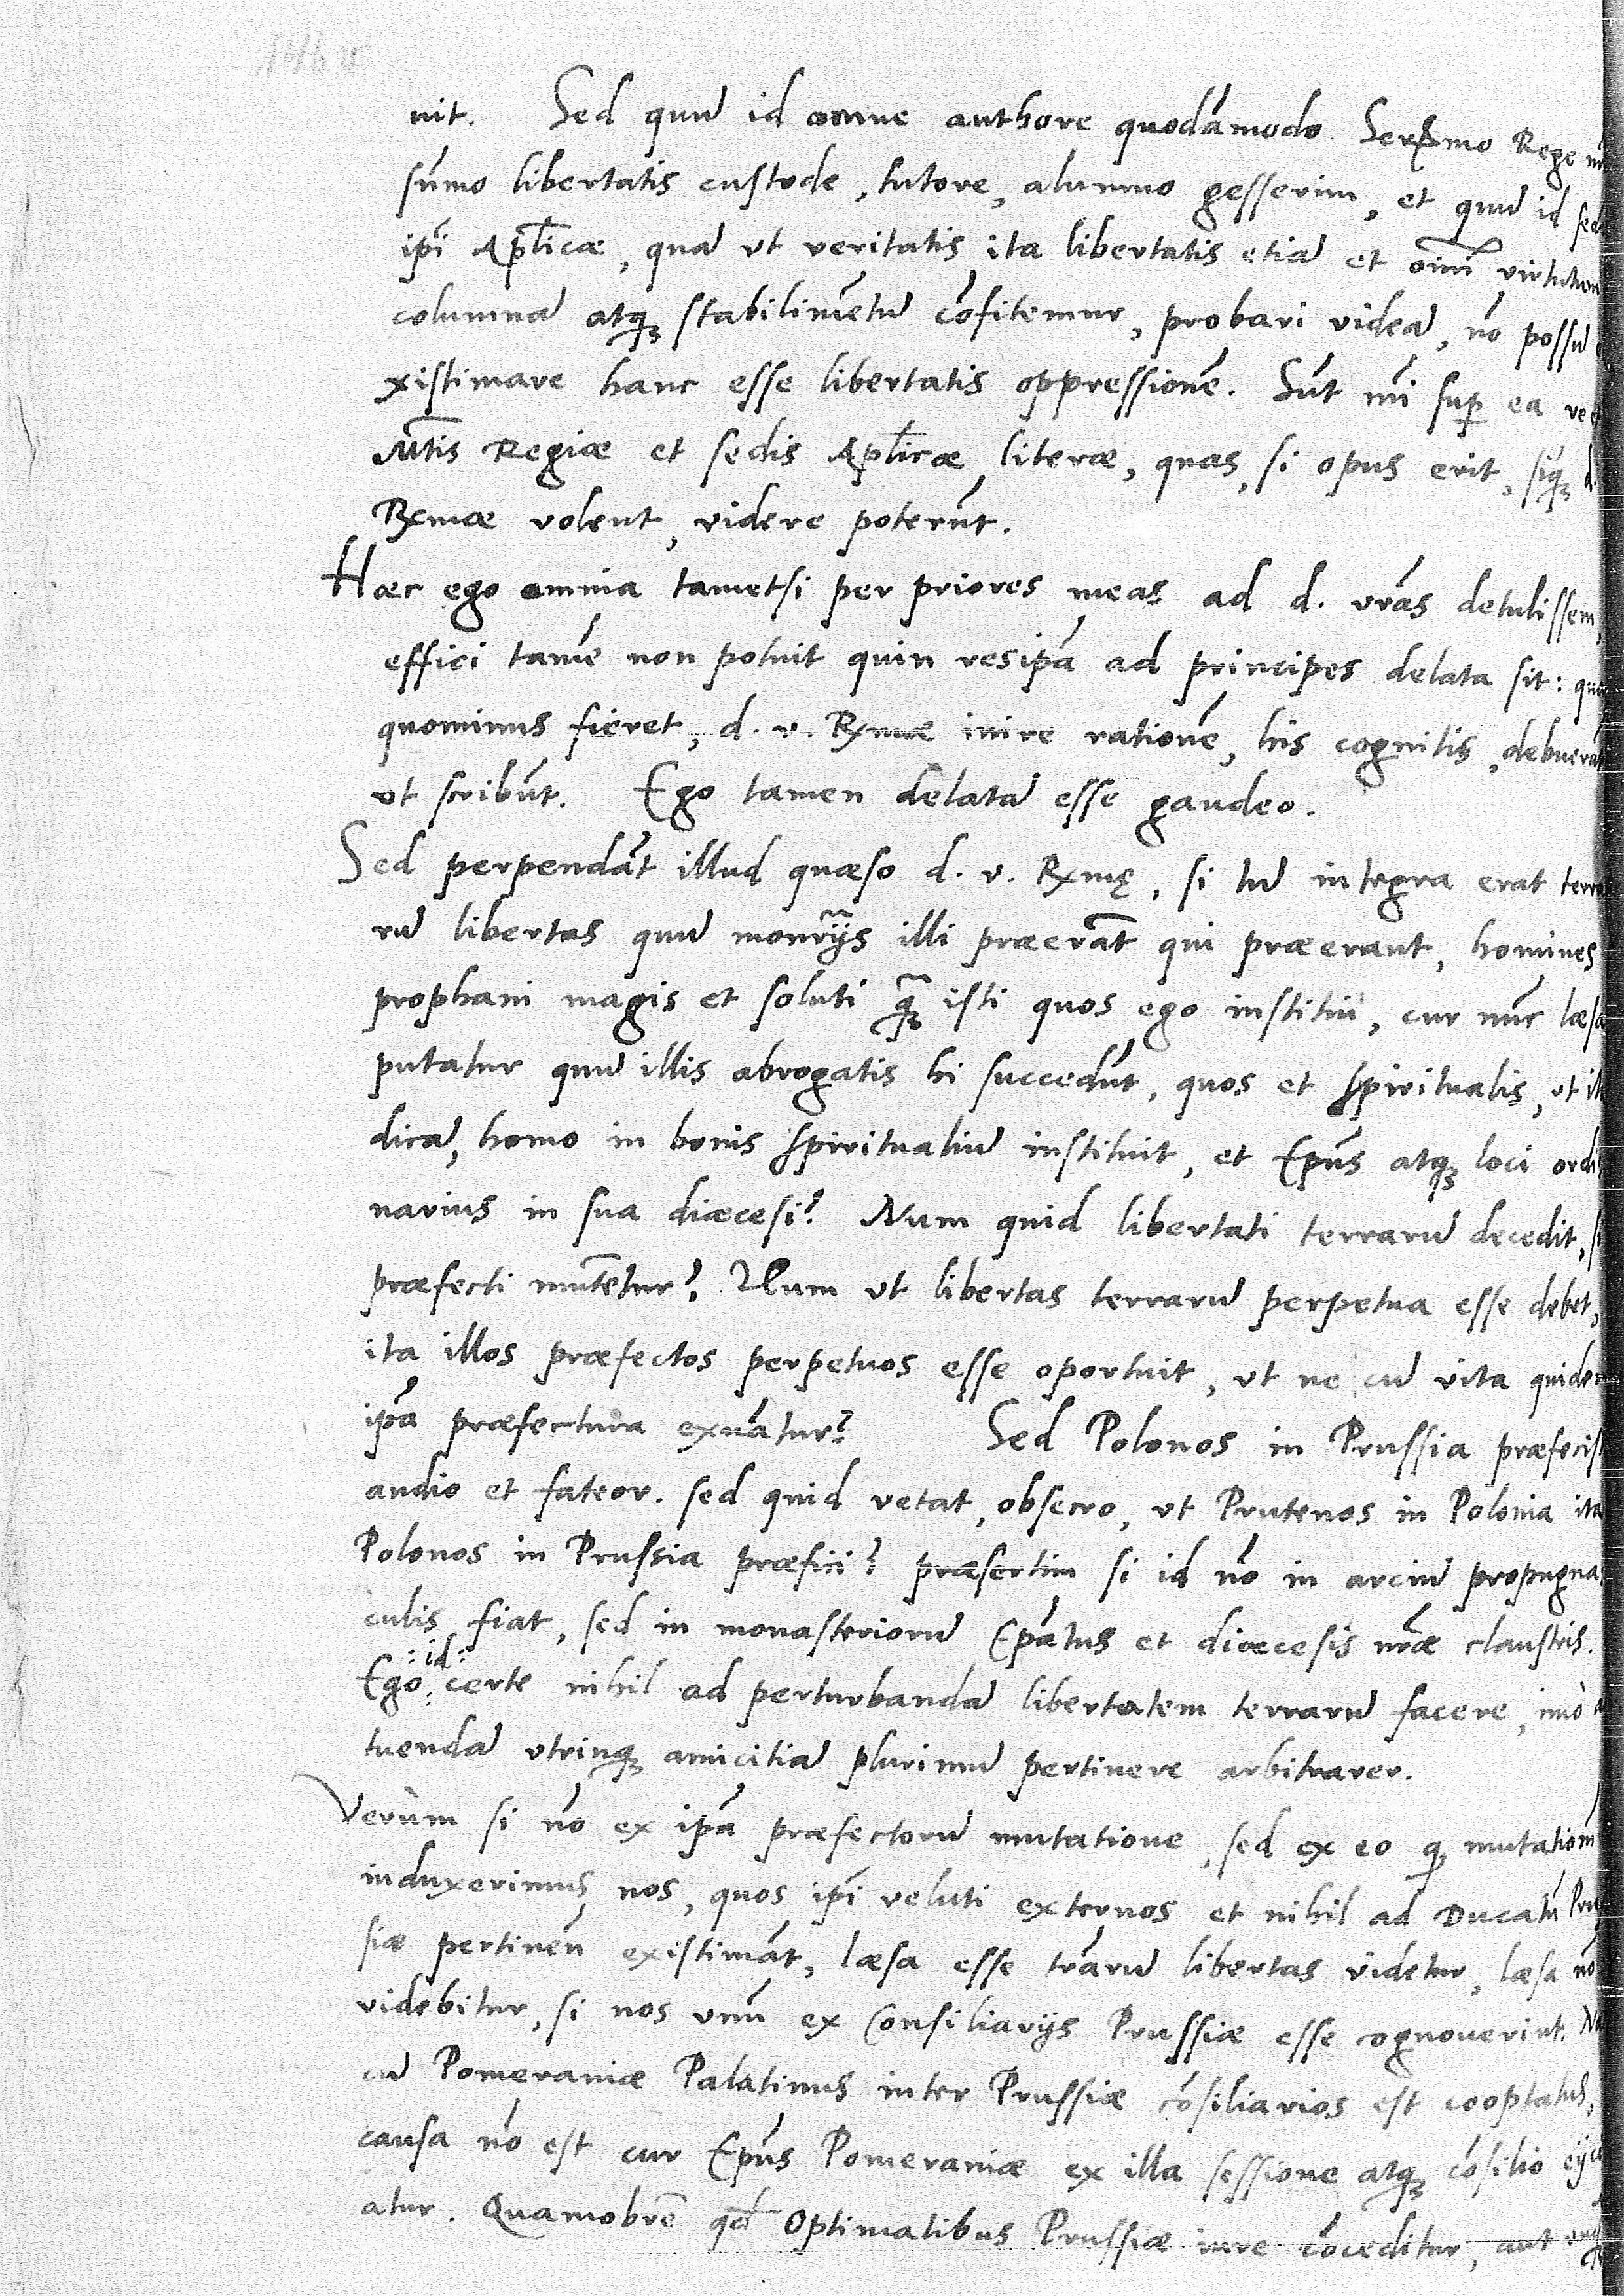 146 v
uit. Sed quū id omne authore quodāmodo Serssmo Rege
sūmo libertatis custode, tutore, alumno gesserim, et quū id sed
ipī Aplicæ, quā ut veritatis ita libertatis etiā et oīm virtutum
columnā atq; stabilimētū cōfitemur, probari videā, nō possū
xistimare hanc esse libertatis oppressionē. Sūt mī sup ea re
Mtis Regiæ et sedis Aplicæ literæ, quas, si opus erit, siq; d.
Rxmæ volent, videre poterūt.
Hæc ego omnia tametsi per priores meas ad d. vrās detulissem,
effici tamē non potuit quin res ipā ad principes delata sit: quod
quominus fieret, d. v. Rxmæ inire rationē, his cognitis, debuerāt
ut scribūt. Ego tamen delatā esse gaudeo.
Sed perpendāt illud quæso d. v. Rxmę, si tū integra erat terra
rū libertas quū monrijs illi præerāt qui præerant, homines
prophani magis et soluti q̃ isti quos ego institui, cur nūc læsa
putatur quū illis abrogatis hi succedūt, quos et spiritualis, ut ita
dicā, homo in bonis spiritualiū instituit, et Epūs atq; loci ordi
narius in sua diæcesi? Num quid libertati terrarū decedit, si
præfecti mutētur? Num ut libertas terrarū perpetua esse debet,
ita illos præfectos perpetuos esse oportuit, ut ne cū vita quidem
ipā præfectura exuātur? Sed Polonos in Prussia præfecisse
audio et fateor. sed quid vetat, obsecro, ut Prutenos in Polonia ita
Polonos in Prussia præfici? præsertim si id nō in arciū propugna
culis fiat, sed in monasteriorū Epātus et diœcesis nrǣ claustris.
:id:
Ego certe nihil ad perturbandā libertatem terrarū facere, imò a
tuendā utrinq; amicitiā plurimū pertinere arbitrarer.
Verùm si nō ex ipā præfectorū mutatione, sed ex eo q; mutationē
induxerimus nos, quos ipī veluti externos et nihil ad Ducatū Prus
siæ pertinēn existimāt, læsa esse trārū libertas videtur, læsa nō
videbitur, si nos unū ex Consiliarijs Prussiæ esse cognouerint. Nā
cū Pomeraniæ Palatinus inter Prussiæ cōsiliarios est cooptatus,
causa nō est cur Epūs Pomeraniæ ex illa sessione atq; cōsilio eijci
atur. Quamobrē qd Optimatibus Prussiæ iure cōceditur, aut